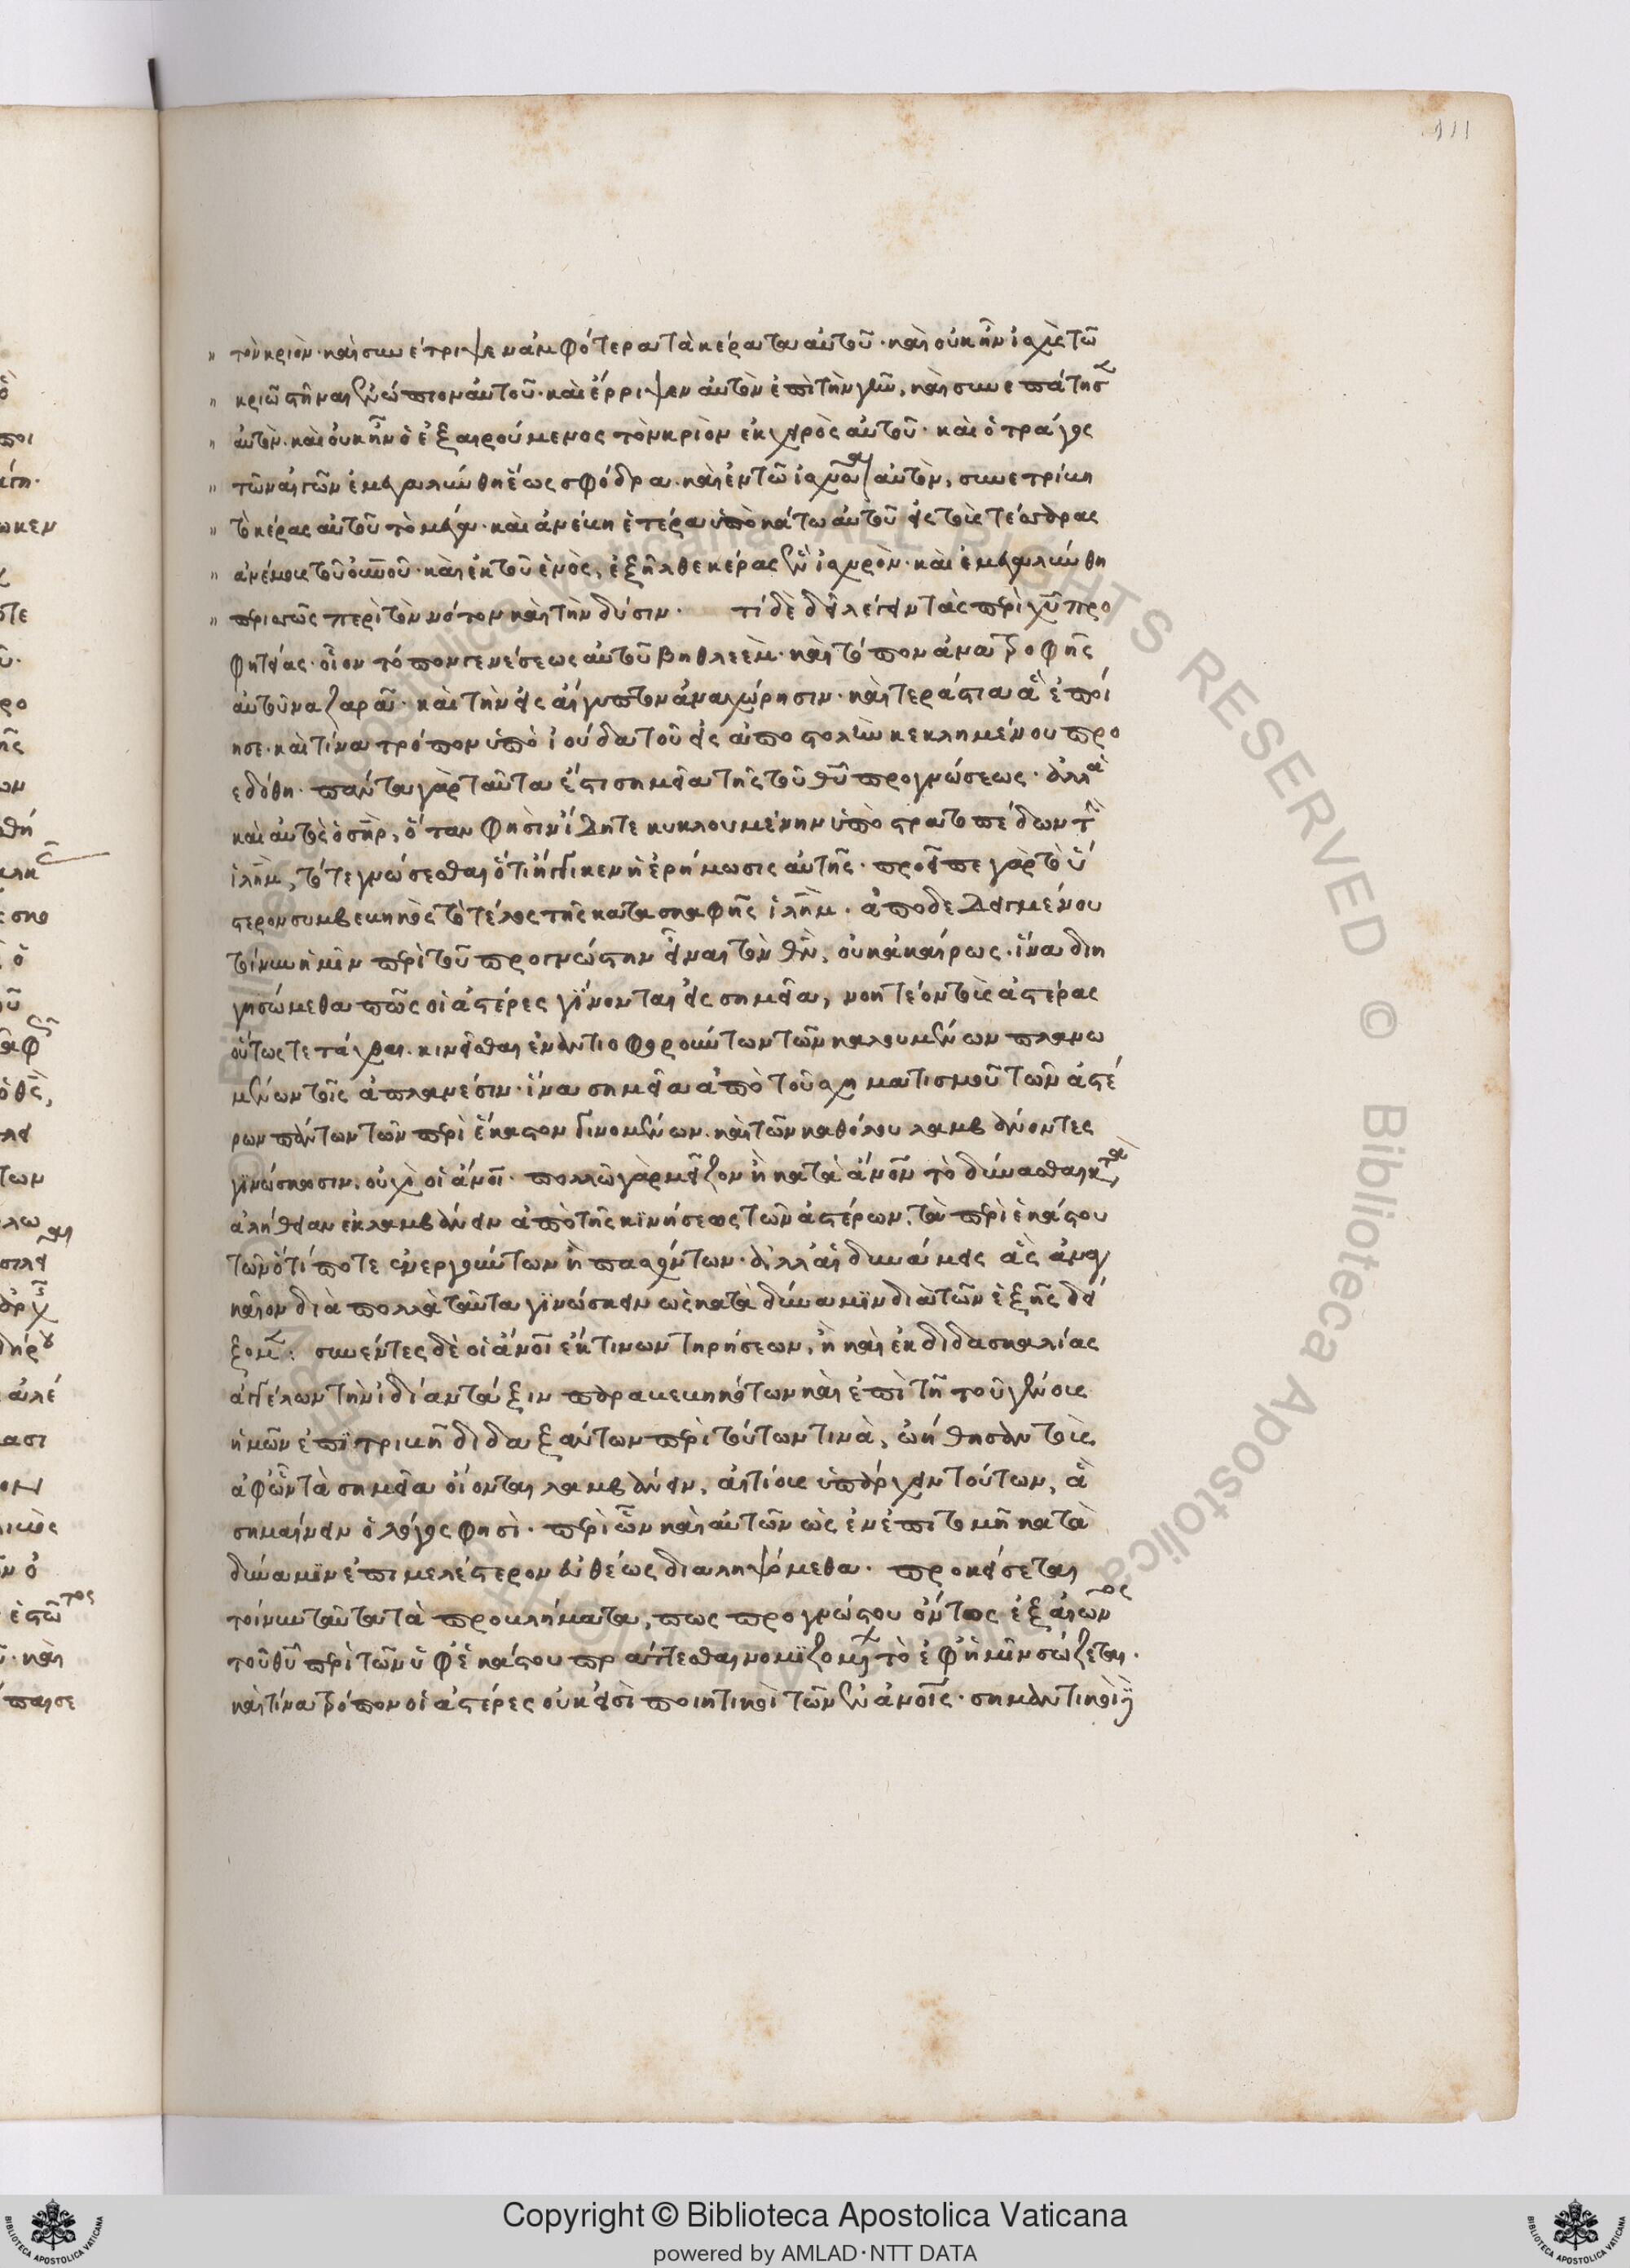 111
τὸν κριὸν· καὶ συνέτριψεν ἀμφότερα τὰ κέρατα αὐτοῦ· καὶ οὐκ ἦν ἰσχὺς τῶ
κριῶ στῆναι ἐνώπιον αὐτοῦ· καὶ ἔρριψεν αὐτὸν ἐπὶ τὴν γῆν, καὶ συνεπάτησ
αὐτὸν. καὶ οὐκ ἦν ὁ ἐξαιρούμενος τὸν κριὸν ἐκ χειρὸς αὐτοῦ· καὶ ὁ τράγος
τῶν αἰγῶν ἐμεγαλύνθη ἕως σφόδρα. καὶ ἐν τῶ ἰσχῦσαι αὐτὸν, συνετρίβη
τὸ κέρας αὐτοῦ τὸ μέγα· καὶ ἀνέβη ἕτερα ὑποκάτω αὐτοῦ εἰς τοὺς τέσσαρας
ἀνέμους τοῦ οὐνοῦ· καὶ ἐκ τοῦ ἑνὸς, ἐξῆλθε κέρας ἓν ἰσχυρὸν· καὶ ἐμεγαλύνθη
περισσῶς περὶ τὸν νότον καὶ τὴν δύσιν· τί δὲ δεῖ λέγειν τὰς περὶ χῦ προ
φητείας· οἷον τόπον γενέσεως αὐτοῦ βηθλεὲμ· καὶ τόπον ἀνατροφῆς
αὐτοῦ ναζαρᾶ· καὶ τὴν εἰς αἴγυπτον ἀναχώρησιν· καὶ τεράστια ἃ ἐποί
ησε· καὶ τίνα τρόπον ὑπὸ ἰούδα τοῦ εἰς ἀποστολὴν κεκλημένου προ
εδόθη· πάντα γὰρ ταῦτα ἐστι σημεῖα τῆς τοῦ θῦ προγνώσεως· ἀλλὰ
καὶ αὐτὸς ὁ σῆρ, ὅταν φησὶν ἴδητε κυκλουμένην ὑπὸ στρατοπέδων τὴν
ἰλῆμ, τότε γνώσεσθαι ὅτι ἤγγικεν ἡ ἐρήμωσις αὐτῆς· προεῖπε γὰρ τὸ ὕ
στερον συμβεβηκὸς τὸ τέλος τῆς κατασκαφῆς ἰλῆμ. ἀποδεδειγμένου
τοίνυν ἡμῖν περὶ τοῦ προγνώστην εἶναι τὸν θν, οὐκ ἀκαίρως· ἵνα διη
γησώμεθα πῶς οἱ ἀστέρες γίνονται εἰς σημεῖα, νοητέον τοὺς ἀστέρας
οὕτως τετάχθαι. κινεῖσθαι ἐναντιοφορούντων τῶν καλουμένων πλανω
μένων τοῖς ἀπλανέσιν· ἵνα σημεῖα ἀπὸ τοῦ σχηματισμοῦ τῶν ἀστέ
ρων πάντων τῶν περὶ ἕκαστον γινομένων. καὶ τῶν καθόλου λαμβάνοντες
γινώσκωσιν. οὐχὶ οἱ ἄνοι· πολλῶ γὰρ μεῖζον ἢ κατὰ ἄνον τὸ δύνασθαι κατὰ
ἀλήθειαν ἐκλαμβάνειν ἀπὸ τῆς κινήσεως τῶν ἀστέρων, τὰ περὶ ἑκάστου
τῶν ὅτί ποτε ἐνεργούντων ἢ πασχόντων· ἀλλ' αἱ δυνάμεις ἃς ἀναγ
καῖον διὰ πολλὰ ταῦτα γινώσκειν ὡς κατὰ δύναμιν διὰ τῶν ἑξῆς δεί
ξομ. συνέντες δὲ οἱ ἄνοι ἔκ τινων τηρήσεων, ἢ καὶ ἐκ διδασκαλίας
ἀγγέλων τὴν ἰδίαν τάξιν παραβεβηκότων καὶ ἐπὶ τῆ τοῦ γένους
ἡμῶν ἐπιτριβῆ διδαξάντων περὶ τούτων τινὰ, ὠήθησαν τοὺς
ἀφ' ὧν τὰ σημεῖα οἴονται λαμβάνειν, αἰτίους ὑπάρχειν τούτων, ἃ
σημαίνειν ὁ λόγος φησὶ· περὶ ὧν καὶ αὐτῶν ὡς ἐν ἐπιτομῆ κατὰ
δύναμιν ἐπιμελέστερον εὐθέως διαληψόμεθα· προκείσεται
τοίνυν ταῦτα τὰ προβλήματα, πως προγνώστου ὄντος ἐξ αἰῶνος
τοῦ θῦ περὶ τῶν ὑφ' ἑκάστου πράττεσθαι νομιζομ τὸ ἐφ' ἡμῖν σώζεται.
καὶ τίνα τρόπον οἱ ἀστέρες οὐκ εἰσὶ ποιητικοὶ τῶν ἐν ἀνοις· σημαντικοὶ
Copyright © Biblioteca Apostolica Vaticana
powered by AMLAD·NTT DATA